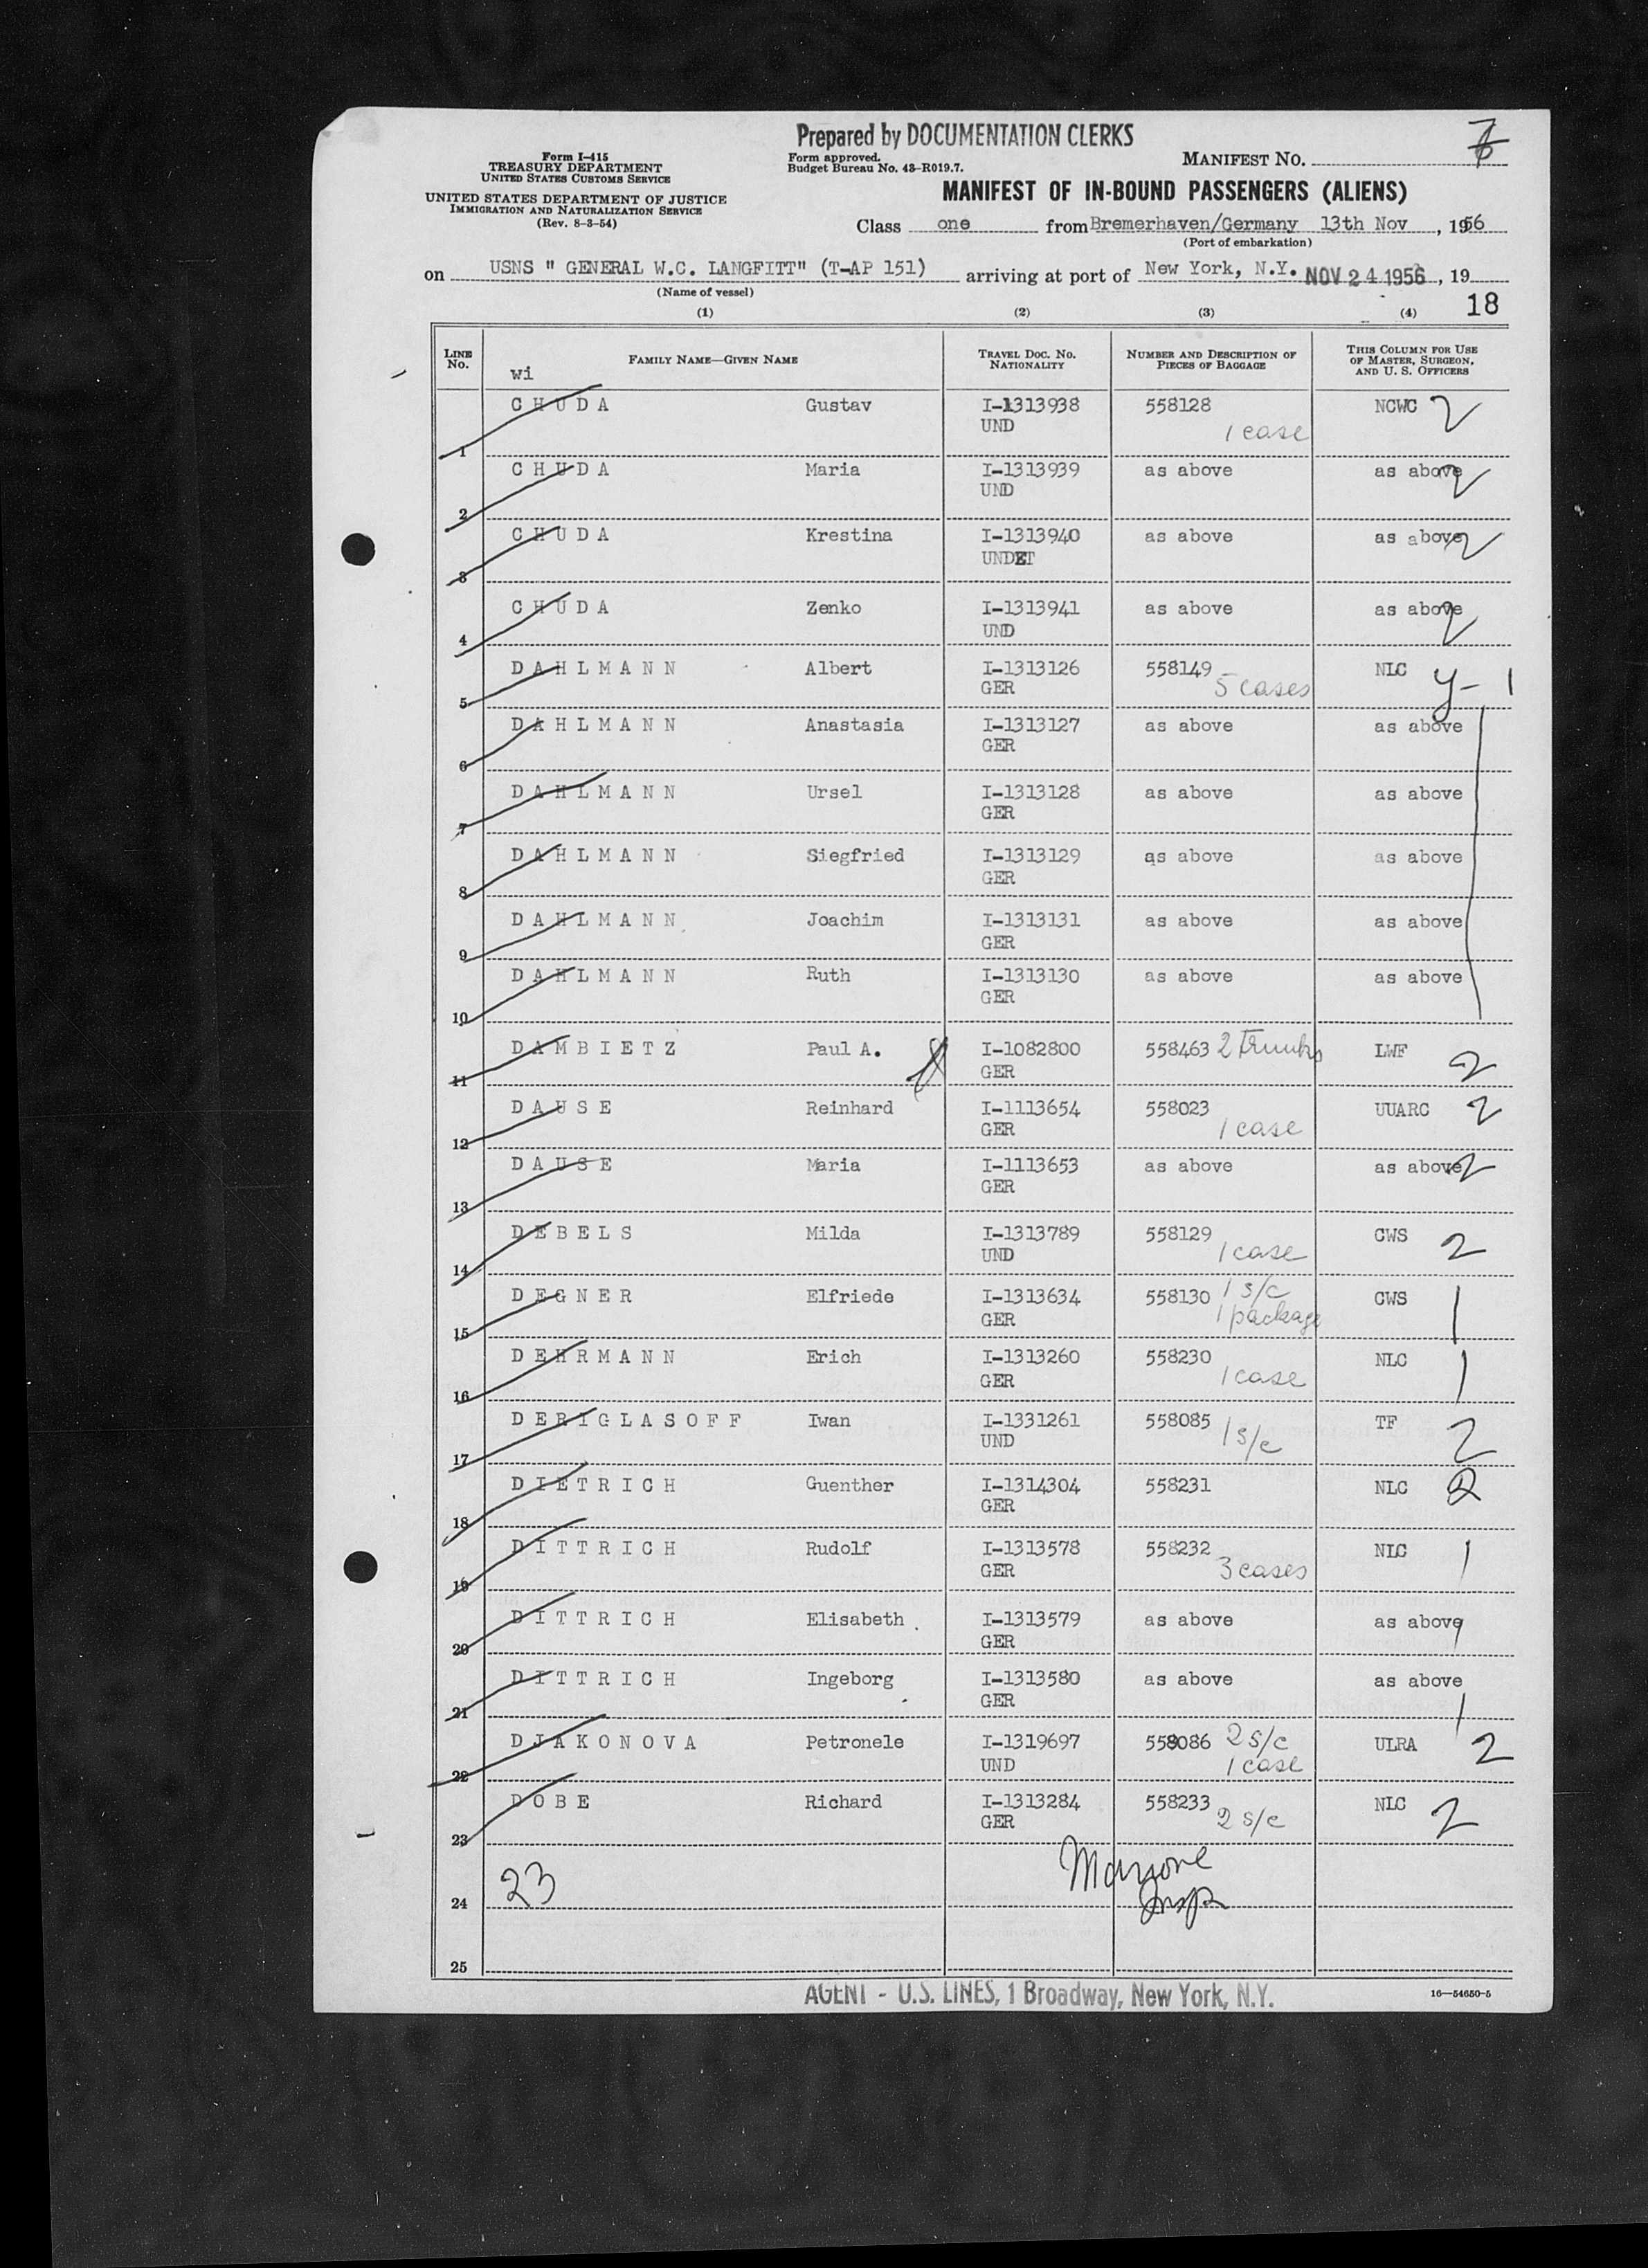 Prepared by DOCUMENTATION CLERKS
Form I-415
TREASURY DEPARTMENT
UNITED STATES CUSTOMS SERVICE
Form approved.
Budget Bureau No. 43-R019.7.
MANIFEST NO. 7
UNITED STATES DEPARTMENT OF JUSTICE
IMMIGRATION AND NATURALIZATION SERVICE
(Rev. 8-3-54)
MANIFEST OF IN-BOUND PASSENGERS (ALIENS)
Class one from Bremerhaven/Germany 13th Nov, 1956
(Port of embarkation)
on USNS " GENERAL W.C. LANGFITT" (T-AP 151) arriving at port of New York, N.Y. NOV 24 1956, 19
(Name of vessel)
18
(1) (2) (3) (4)
LINE NO. FAMILY NAME—GIVEN NAME TRAVEL DOC. NO. NATIONALITY NUMBER AND DESCRIPTION OF PIECES OF BAGGAGE THIS COLUMN FOR USE OF MASTER, SURGEON, AND U. S. OFFICERS
wi
1 CHUDA Gustav I-1313938 UND 558128 1 case NCWC 2
2 CHUDA Maria I-1313939 UND as above as above 2
3 CHUDA Krestina I-1313940 UNDET as above as above 2
4 CHUDA Zenko I-1313941 UND as above as above 2
5 DAHLMANN Albert I-1313126 GER 558149 5 cases NLC y- 1
6 DAHLMANN Anastasia I-1313127 GER as above as above
7 DAHLMANN Ursel I-1313128 GER as above as above
8 DAHLMANN Siegfried I-1313129 GER as above as above
9 DAHLMANN Joachim I-1313131 GER as above as above
10 DAHLMANN Ruth I-1313130 GER as above as above
11 DAMBIETZ Paul A. I-1082800 GER 558463 2 Trunks LWF 2
12 DAUSE Reinhard I-1113654 GER 558023 1 case UUARC 2
13 DAUSE Maria I-1113653 GER as above as above 2
14 DEBELS Milda I-1313789 UND 558129 1 case CWS 2
15 DEGNER Elfriede I-1313634 GER 558130 1 s/c 1 package CWS 1
16 DEHRMANN Erich I-1313260 GER 558230 1 case NLC 1
17 DERIGLASOFF Iwan I-1331261 UND 558085 1 s/c TF 2
18 DIETRICH Guenther I-1314304 GER 558231 NLC 2
19 DITTRICH Rudolf I-1313578 GER 558232 3 cases NLC 1
20 DITTRICH Elisabeth I-1313579 GER as above as above 1
21 DITTRICH Ingeborg I-1313580 GER as above as above 1
22 DJAKONOVA Petronele I-1319697 UND 558086 2 s/c 1 case ULRA 2
23 DOBE Richard I-1313284 GER 558233 2 s/c NLC 2
24 23
Insp
25
AGENT - U.S. LINES, 1 Broadway, New York, N.Y.
16—54650-5